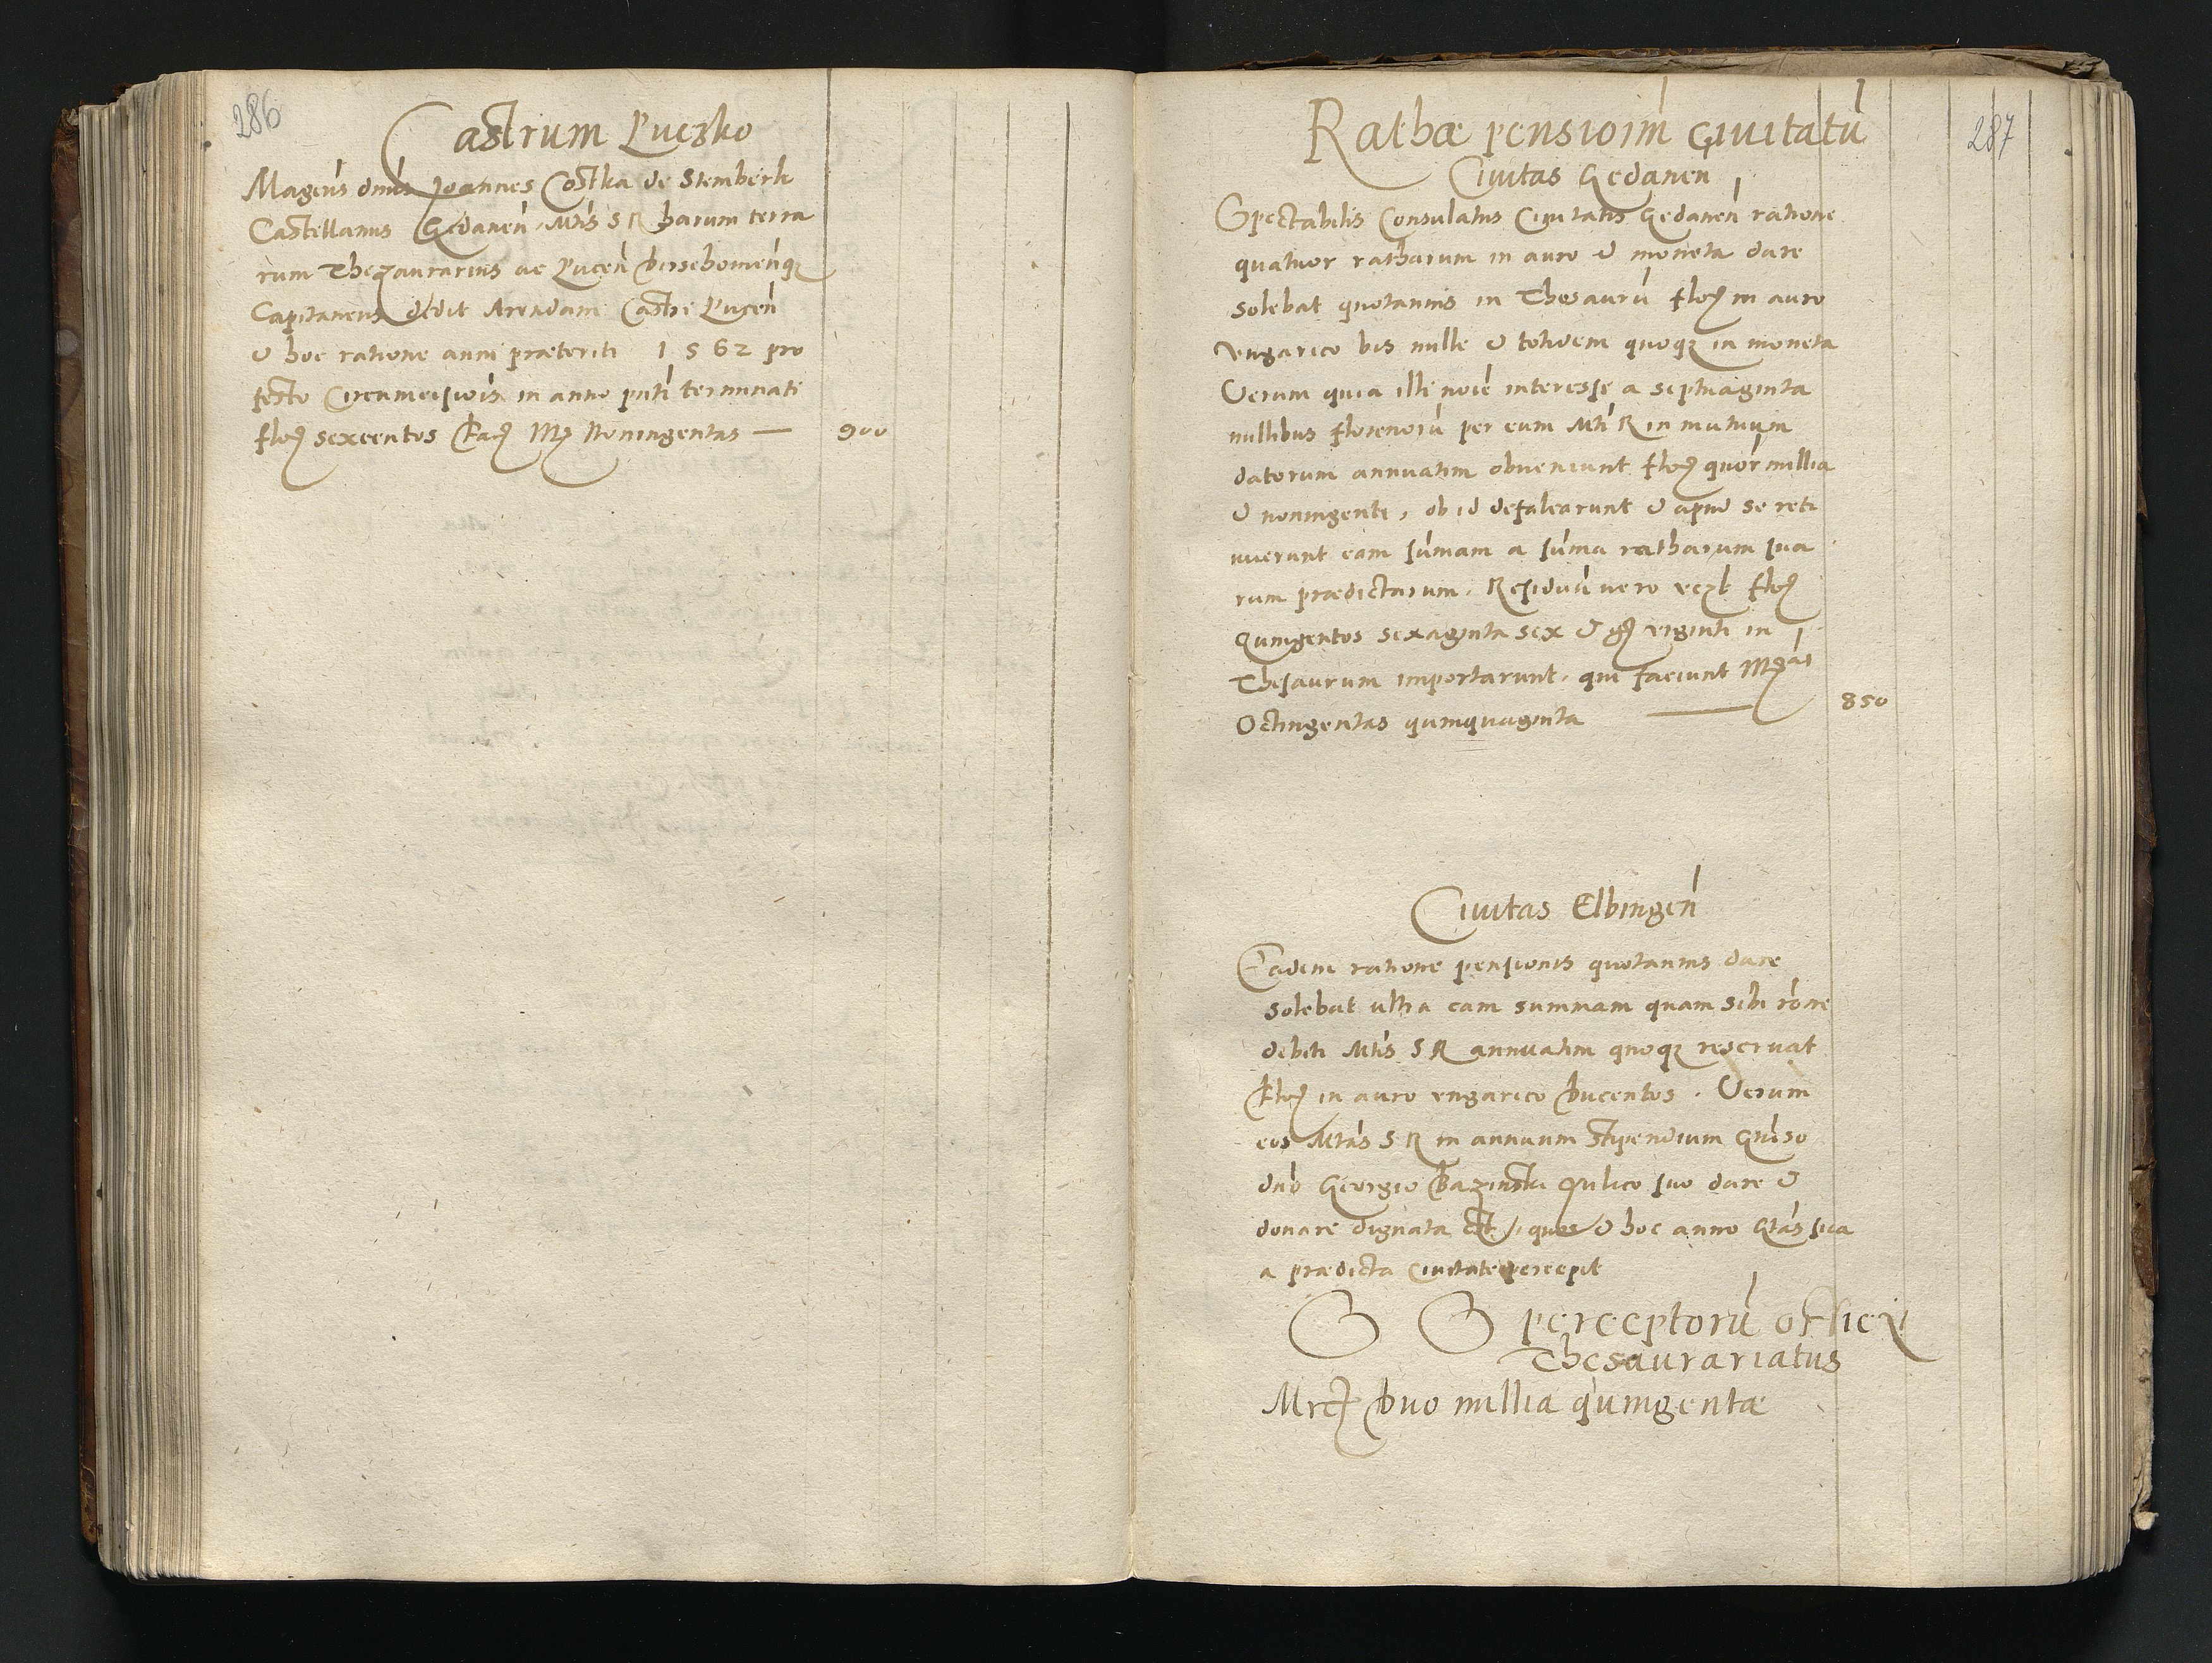 286
Castrum Puczko
Magcus dnus Joannes Costka de Stemberk
Castellanus Gedanen Mtis S R harum terra
rum Thezaurarius ac Pucen dirsehouienqz
Capitaneus dedit Arendam Castri Pucen
& hoc ratione anni præteriti 1562 pro
festo Circumcisiois in anno pnti terminati
floz sexcentos fac Mz Noningentas — 900
287
Rathæ pensionim Civitatu
Civitas Gedanen
Spectabilis Consulatus Civitatis Gedanen ratione
quatuor ratharum in auro & moneta dare
solebat quotannis in Thesauru floz in auro
vngarico bis mille & totidem quoqz in moneta
Verum quia illi noie interesse a septuaginta
millibus florenoru per eum Mti R in mutuum
datorum annuatim obueniunt floz quor millia
& noningenti, ob id defalcarunt & apud se reti
nuerunt eam sumam a suma ratharum sua
rum prædictarum. Residuu vero vczl floz
Quingentos sexaginta sex & gz viginti in
Thesaurum importarunt. qui faciunt Mzas
Octingentas quinquaginta — 850
Civitas Elbingen
Eadem ratione pensionis quotannis dare
solebat ultra eam summam quam sibi rone
debiti Mtis S R annuatim quoqz reseruat
floz in auro vngarico Ducentos. Verum
eos Mtas S R in annuum stipendium Gnoso
dno Georgio Bazinski Aulico suo dare &
donare dignata est, quos & hoc anno Gtas sua
a prædicta Ciuitate percepit
perceptoru officij
Thesaurariatus
Mrcz Duo millia quingentæ